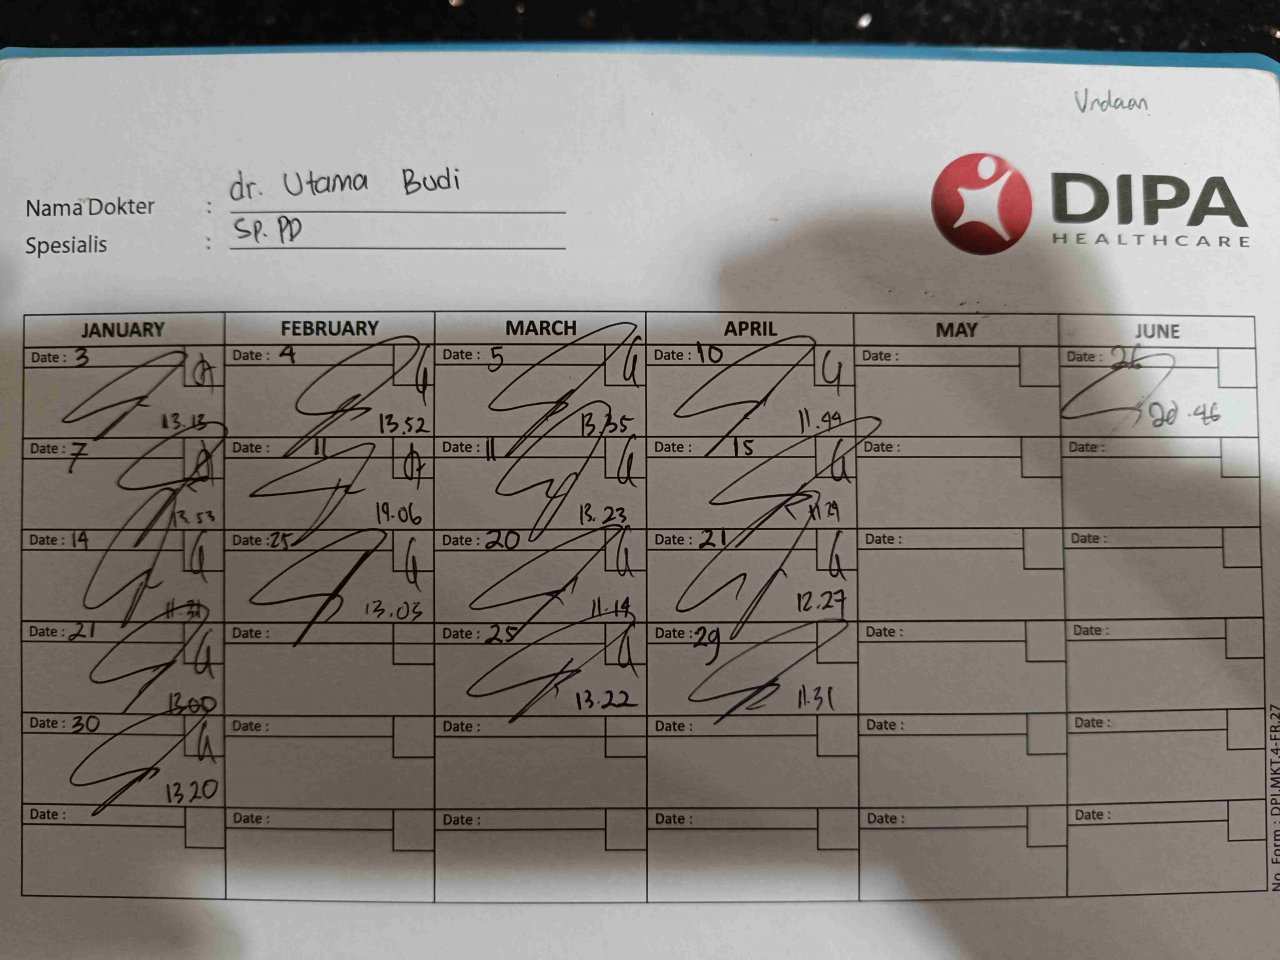 Undaan
DIPA
HEALTHCARE
Nama Dokter : dr. Utama Budi
Spesialis : Sp. PD
JANUARY FEBRUARY MARCH APRIL MAY JUNE
Date : 3 Date : 4 Date : 5 Date : 10 Date : Date : 26
13.13 13.52 13.35 11.44 20.46
Date : 7 Date : 11 Date : 11 Date : 15 Date : Date :
13.53 19.06 13.23 11.29
Date : 14 Date : 25 Date : 20 Date : 21 Date : Date :
13.03 11.14 12.27
Date : 21 Date : Date : 25 Date : 29 Date : Date :
13.00 13.22 11.31
Date : 30 Date : Date : Date : Date : Date :
13.20
Date : Date : Date : Date : Date : Date :
No. Form : DPI.MKT.4-FR.27